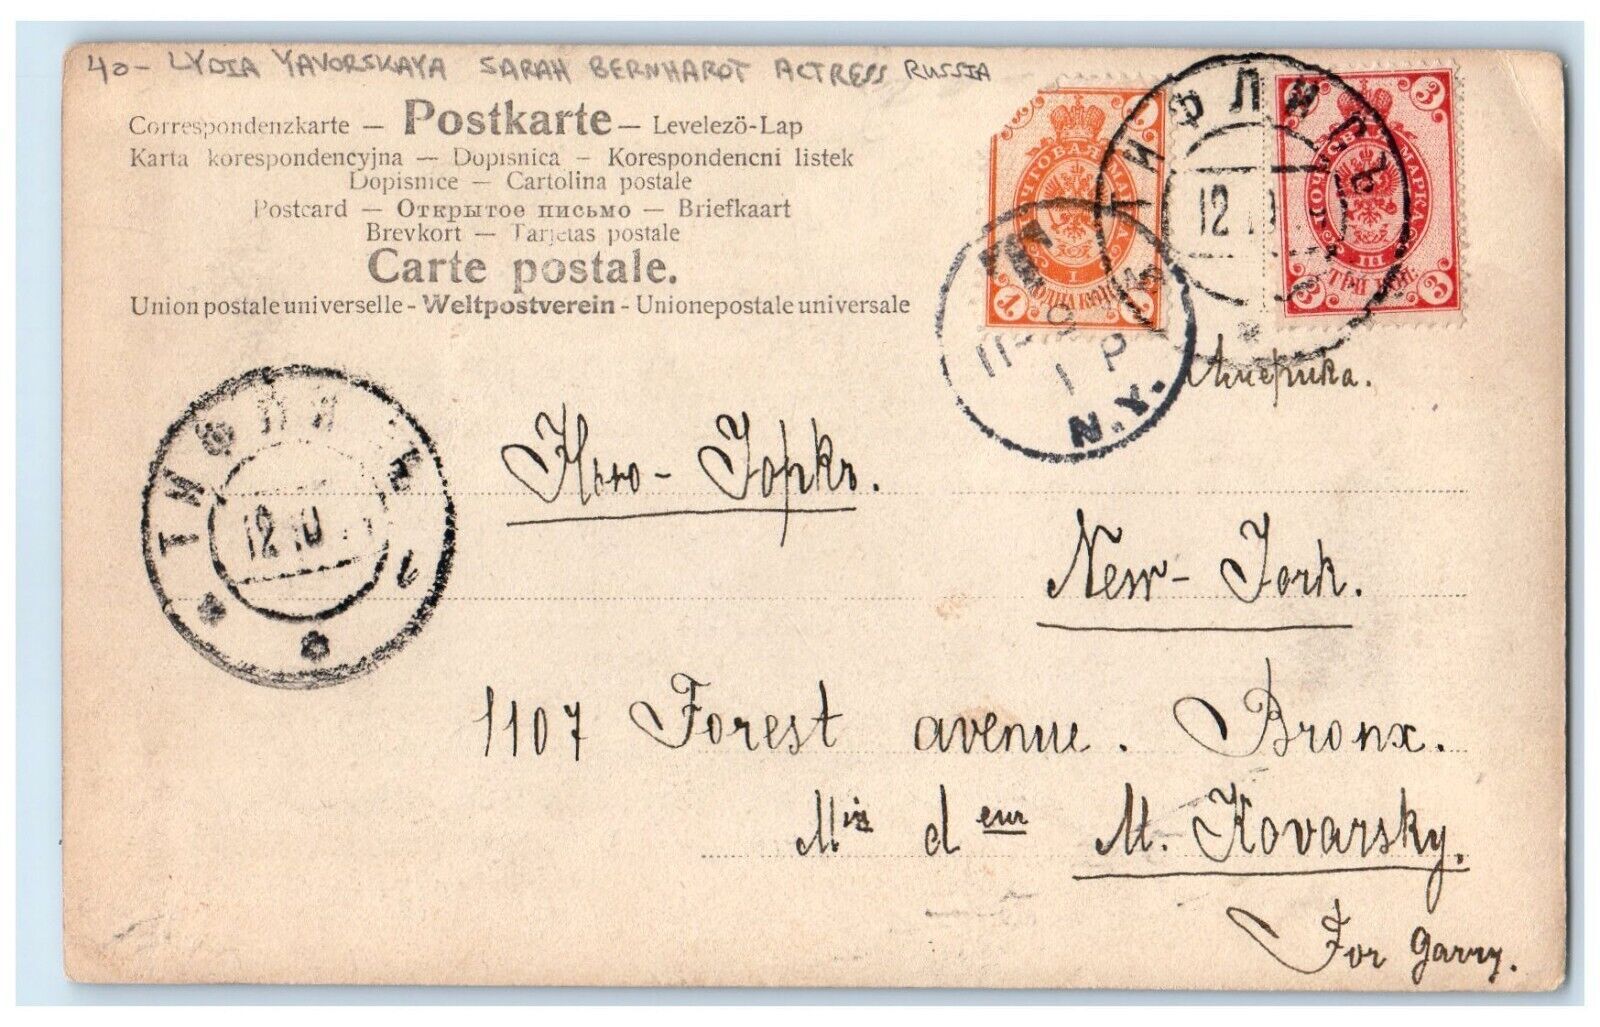 40- LYDIA YAVORSKAYA SARAH BERNHARDT ACTRESS RUSSIA
Correspondenzkarte — Postkarte — Levelezö-Lap
Karta korespondencyjna — Dopisnica — Korespondencni listek
Dopisnice — Cartolina postale
Postcard — Открытое письмо — Briefkaart
Brevkort — Tarjetas postale
Carte postale.
Union postale universelle - Weltpostverein - Unionepostale universale
ПОЧТОВАЯ МАРКА
1
I
ПОЧТОВАЯ МАРКА
3
III
ТРИ КОП.
ТИФЛИСЪ
12
N.Y.
11-9
1 P
Америка.
ТИФЛИСЪ
12 10
Нью-Іоркъ.
New-Jork.
1107 Forest avenue. Bronx.
M. Kovarsky.
For Garry.